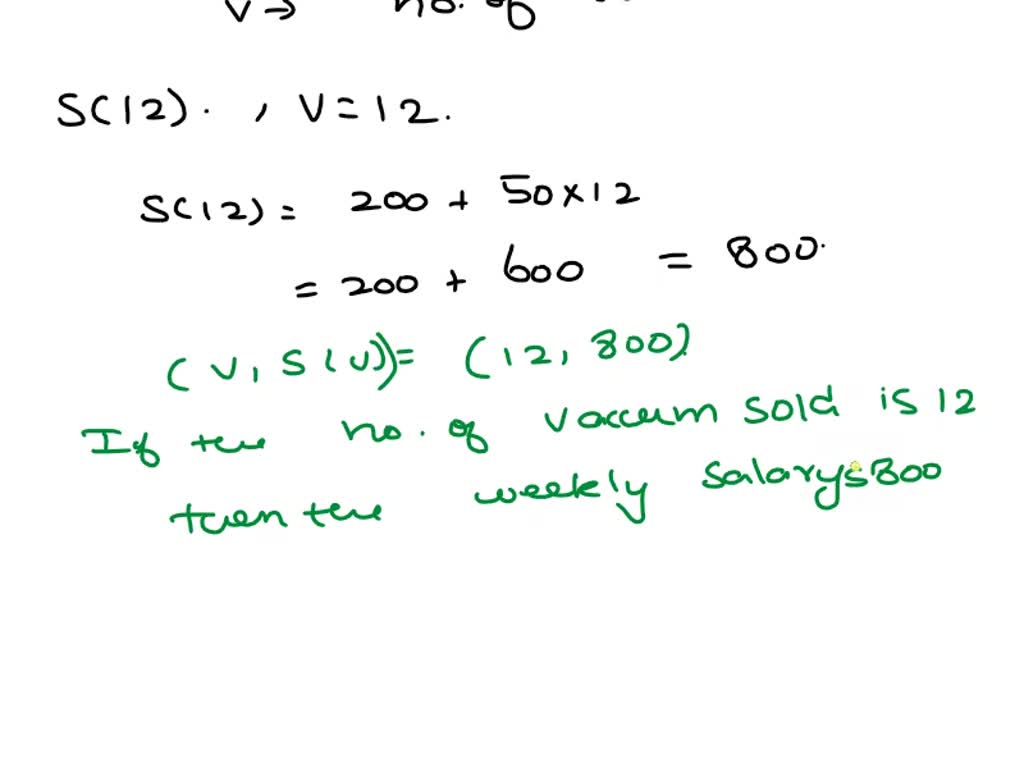 V → no. of
S(12). , V = 12.
S(12) = 200 + 50 × 12
= 200 + 600 = 800.
(V, S(V)) = (12, 800)
If the no. of vaccum sold is 12
then the weekly salary $800